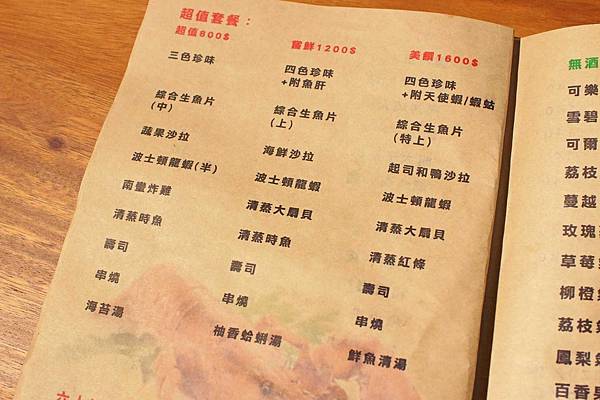 超值套餐：
超值600$
三色珍味
綜合生魚片
(中)
蔬果沙拉
波士頓龍蝦(半)
南蠻炸雞
清蒸時魚
壽司
串燒
海苔湯
嘗鮮1200$
四色珍味
+附魚肝
綜合生魚片
(上)
海鮮沙拉
波士頓龍蝦
清蒸大扇貝
清蒸時魚
壽司
串燒
柚香蛤蜊湯
美饌1600$
四色珍味
+附天使蝦/蝦蛄
綜合生魚片
(特上)
起司和鴨沙拉
波士頓龍蝦
清蒸大扇貝
清蒸紅條
壽司
串燒
鮮魚清湯
無酒
可樂
雪碧
可爾
荔枝
蔓越
玫瑰
草莓
柳橙
荔枝
鳳梨
百香果